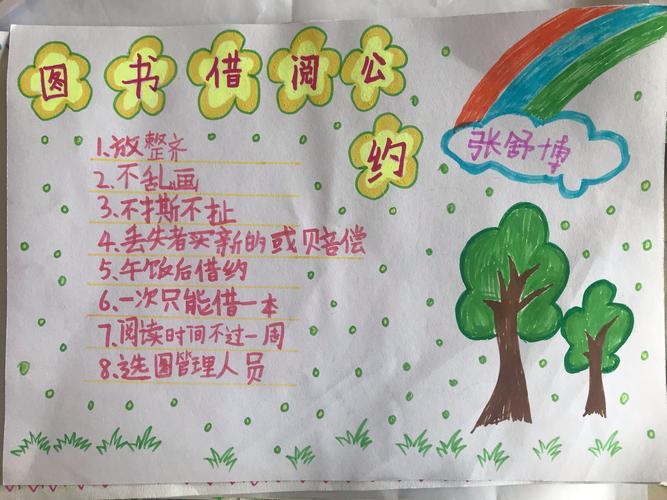 图书借阅公约
张舒博
1.放整齐
2.不乱画
3.不撕不扯
4.丢失者买新的或赔偿
5.午饭后借约
6.一次只能借一本
7.阅读时间不过一周
8.选图管理人员